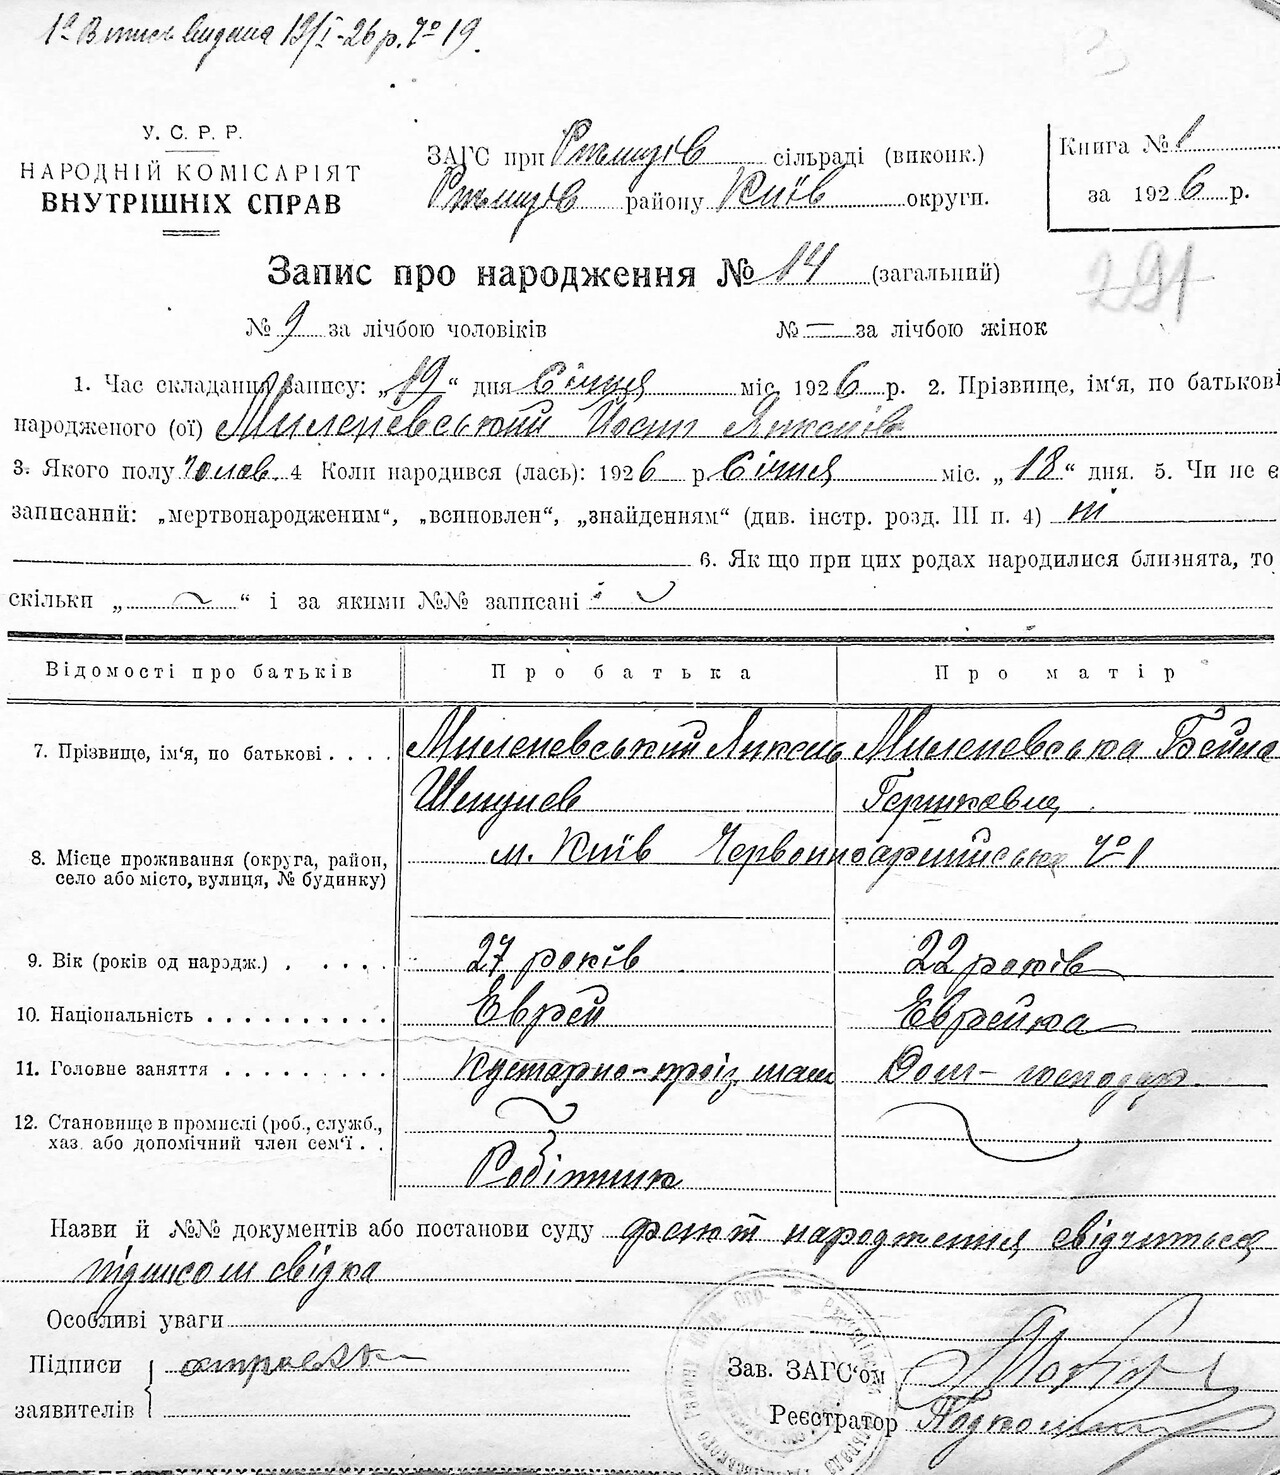 1º Витис видана 19/I-26 р. № 19.
У. С. Р. Р.
НАРОДНІЙ КОМІСАРІЯТ
ВНУТРІШНІХ СПРАВ
ЗАГС при Ржищів сільраді (виконк.)
Ржищів району Київ округи.
Книга № 1
за 1926 р.
Запис про народження № 14 (загальний)
291
№ 9 за лічбою чоловіків № — за лічбою жінок
1. Час складання запису: „19“ дня Січня міс. 1926 р. 2. Прізвище, ім‘я, по батькові
народженого (ої) Миленевський Йосип
3. Якого полу чолов. 4 Коли народився (лась): 1926 р. Січня міс. „18“ дня. 5. Чи не є
записаний: „мертвонародженим“, „всиповлен“, „знайденням“ (див. інстр. розд. III п. 4) ні
6. Як що при цих родах народилися близнята, то
скільки „ “ і за якими №№ записані
Відомості про батьків Про батька Про матір
7. Прізвище, ім‘я, по батькові . . . . Миленевський Миленевська Бейла
Гершковна
8. Місце проживання (округа, район, м. Київ Червоноармійська № 1
село або місто, вулиця, № будинку)
9. Вік (років од народж.) . . . . . 27 років 22 років
10. Національність . . . . . . . . . . Еврей Еврейка
11. Головне заняття . . . . . . . . . Кустарно- Дом- господар.
12. Становище в промислі (роб., служб.,
хаз. або допомічний член сем‘ї . .
Робітник
Назви й №№ документів або постанови суду факт народження свідчиться
підписом свідка
Особливі уваги
Підписи
заявителів
Зав. ЗАГС‘ом
Реєстратор